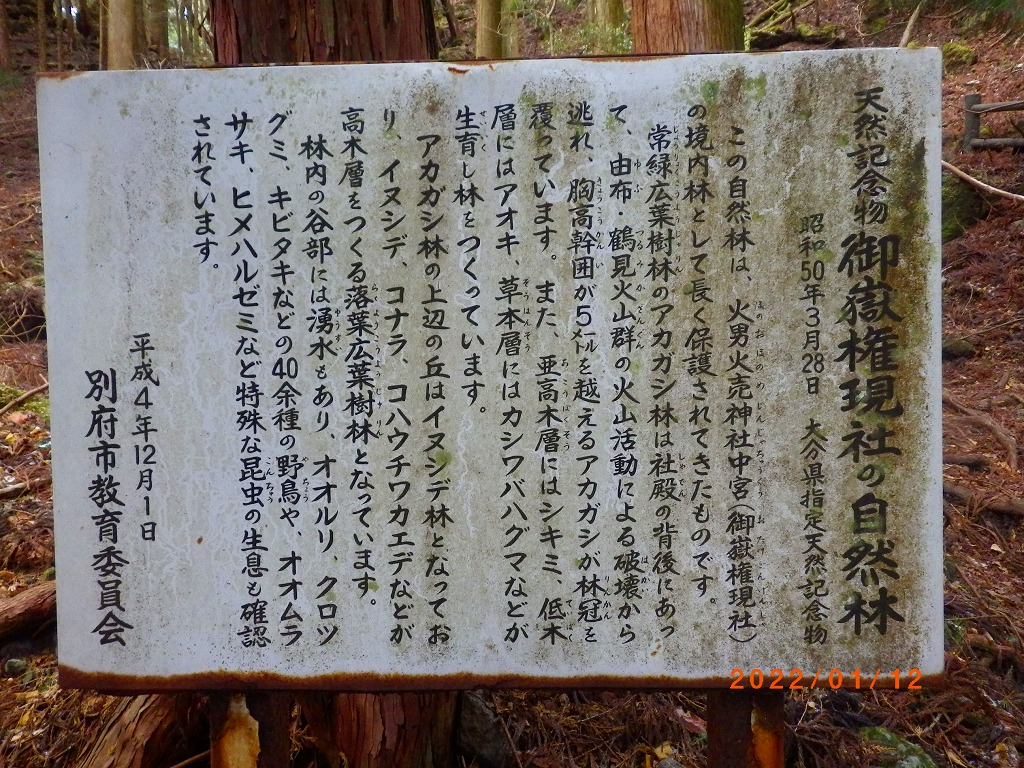 天然記念物 御嶽権現社の自然林
昭和50年3月28日 大分県指定天然記念物
この自然林は、火男火売神社中宮(御嶽権現社)
の境内林として長く保護されてきたものです。
常緑広葉樹林のアカガシ林は社殿の背後にあっ
て、由布・鶴見火山群の火山活動による破壊から
逃れ、胸高幹囲が5㍍を越えるアカガシが林冠を
覆っています。また、亜高木層にはシキミ、低木
層にはアオキ、草本層にはカシワバハグマなどが
生育し林をつくっています。
アカガシ林の上辺の丘はイヌシデ林となってお
り、イヌシデ、コナラ、コハウチワカエデなどが
高木層をつくる落葉広葉樹林となっています。
林内の谷部には湧水もあり、オオルリ、クロツ
グミ、キビタキなどの40余種の野鳥や、オオムラ
サキ、ヒメハルゼミなど特殊な昆虫の生息も確認
されています。
平成4年12月1日
別府市教育委員会
2022/01/12